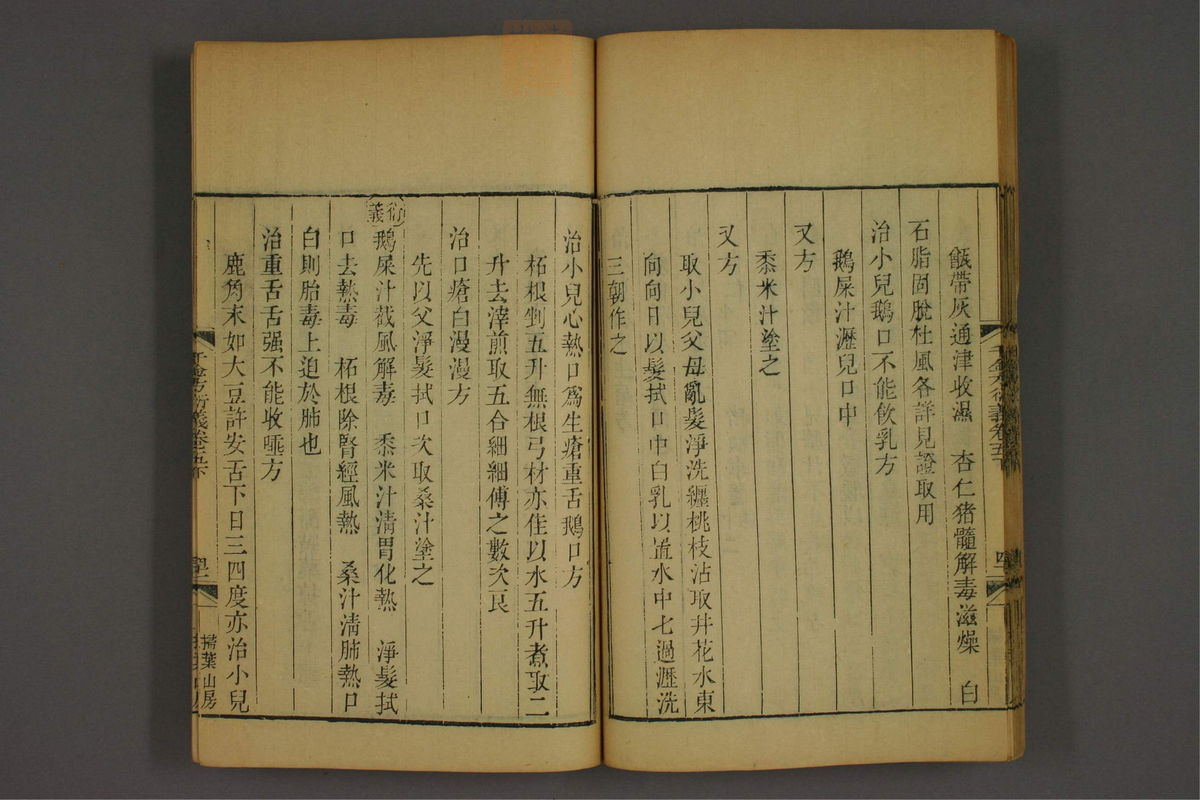 甑帶灰通津收濕　杏仁猪髓解毒滋燥　白
石脂固脫杜風各詳見證取用
治小兒鵝口不能飲乳方
鵝屎汁瀝兒口中
又方
黍米汁塗之
又方
取小兒父母亂髮淨洗纏桃枝沾取井花水東
向向日以髮拭口中白乳以置水中七過瀝洗
三朝作之
治小兒心熱口爲生瘡重舌鵝口方
柘根剉五升無根弓材亦佳以水五升煮取二
升去滓煎取五合細細傅之數次良
治口瘡白漫漫方
先以父淨髮拭口次取桑汁塗之
衍義 鵝屎汁截風解毒　黍米汁清胃化熱　淨髮拭
口去熱毒　柘根除腎經風熱　桑汁清肺熱口
白則胎毒上迫於肺也
治重舌舌强不能收唾方
鹿角末如大豆許安舌下日三四度亦治小兒
千金方衍義卷五下
掃葉山房